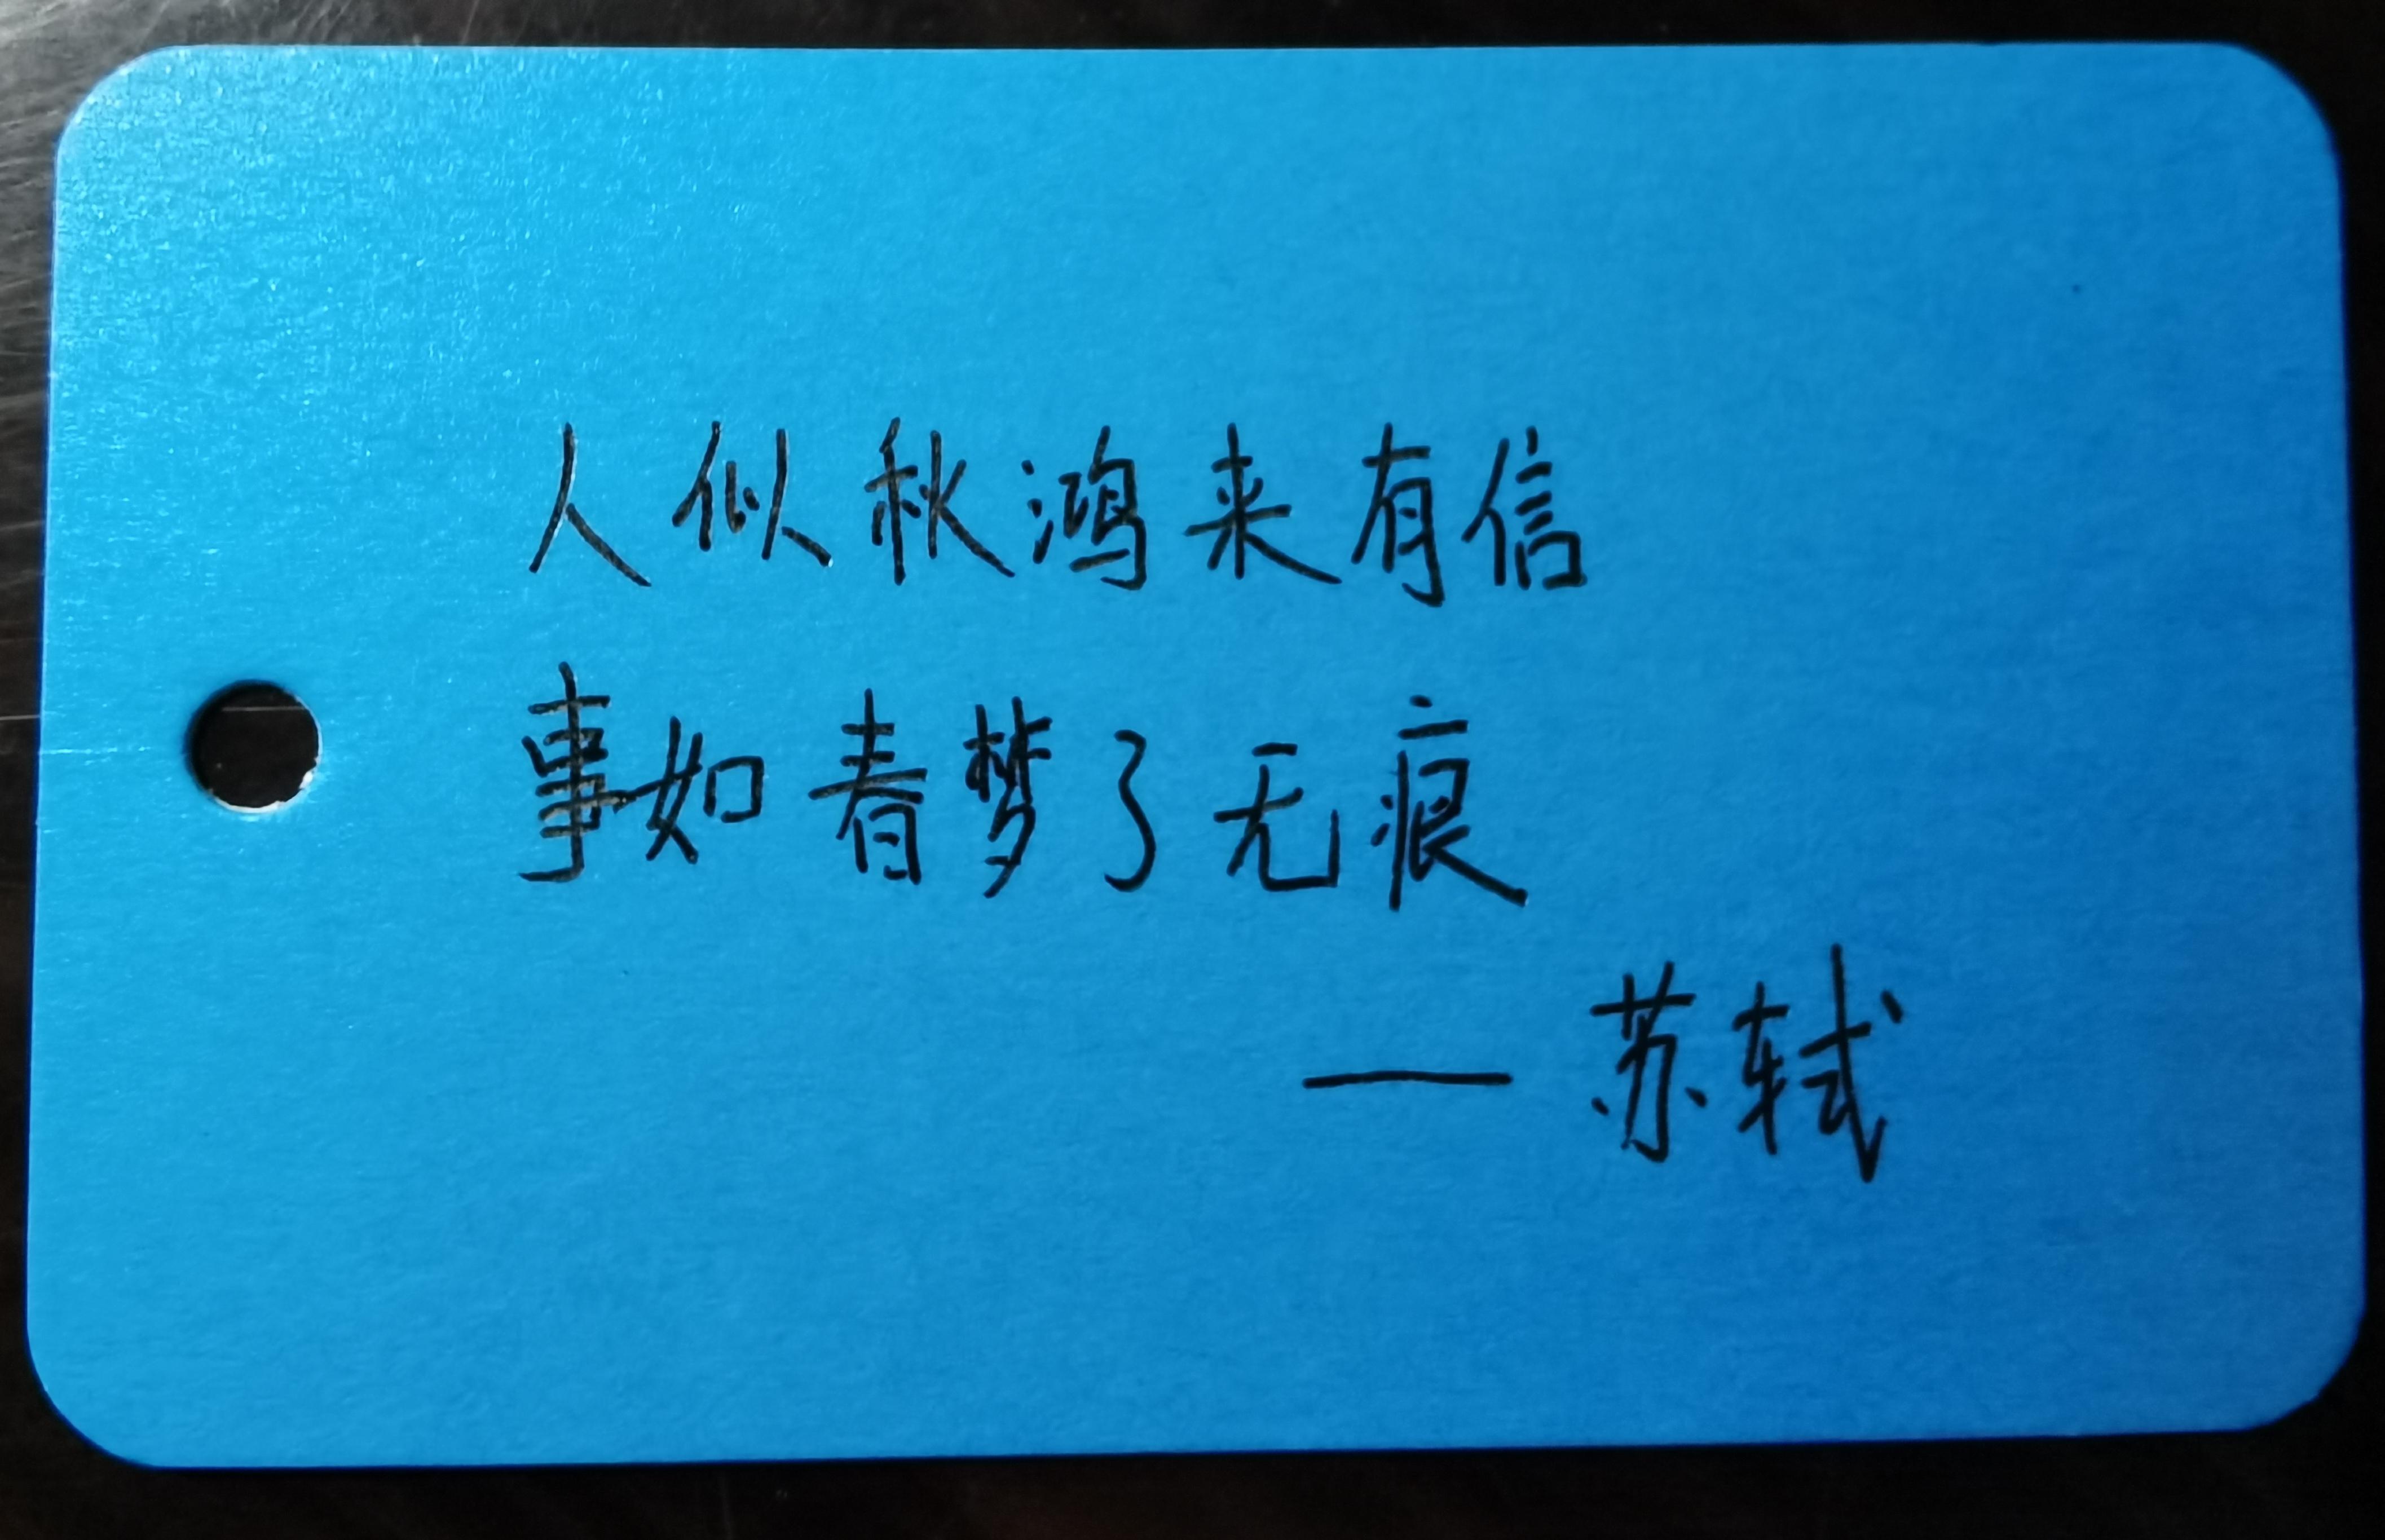 人似秋鸿来有信
事如春梦了无痕
— 苏轼